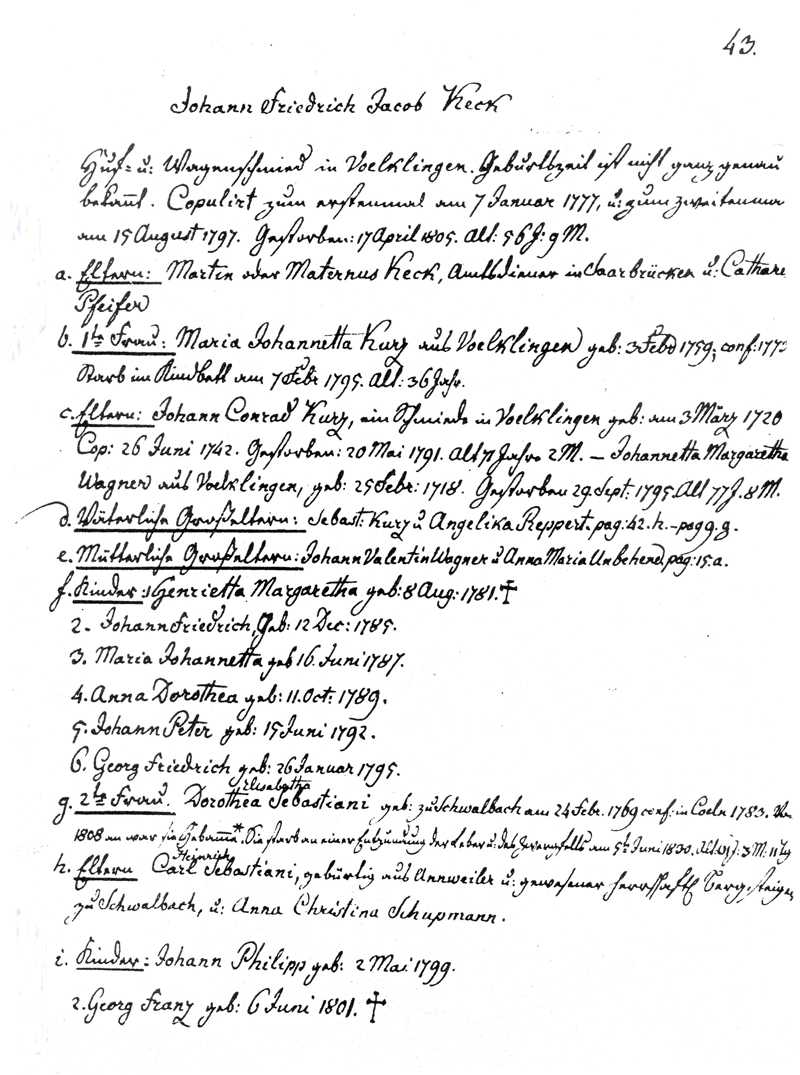 43.
Johann Friedrich Jacob Keck
Huf= u: Wagenschmied in Voelklingen. Geburtszeit ist nicht ganz genau
bekannt. Copulirt zum erstenmal am 7 Januar 1777, u: zum zweitenma
am 15 August 1797. Gestorben: 17 April 1805. Alt: 56 J: 9 M.
a. Eltern: Martin oder Maternus Keck, Amtsdiener in Saarbrücken u: Cathare
Pfeifer
b. 1te Frau: Maria Johannetta Kurz aus Voelklingen geb: 3 Feb 1759; conf: 1773
Starb im Kindbett am 7 Febr 1795. Alt: 36 Jahr.
c. Eltern: Johann Conrad Kurz, ein Schmiede in Voelklingen geb: am 3 März 1720
Cop: 26 Juni 1742. Gestorben: 20 Mai 1791. Alt 71 Jahre 2 M. – Johannetta Margaretha
Wagner aus Voelklingen, geb: 25 Febr: 1718. Gestorben 29. Sept: 1795. Alt 77 J. 8 M.
d. Väterliche Großeltern: Sebast: Kurz u Angelika Reppert. pag: 42. h. – pag 9. g.
e. Mütterliche Großeltern: Johann Valentin Wagner u Anna Maria Unbehend pag: 15. a.
f. Kinder: 1 Henrietta Margaretha geb: 8 Aug: 1781. †
2. Johann Friedrich, Geb: 12 Dec: 1785.
3. Maria Johannetta geb 16. Juni 1787.
4. Anna Dorothea geb: 11. Oct: 1789.
5. Johann Peter geb: 15 Juni 1792.
6. Georg Friedrich geb: 26 Januar 1795.
g. 2te Frau. Dorothea Elisabetha Sebastiani geb: zu Schwalbach am 24 Febr. 1769 conf: in Coeln 1783. Von
1808 an war sie Hebamme* Sie starb an einer Entzündung der Leber u: des Zwergfells am 5te Juni 1830. Alt 61 J: 3 M: 11 Tg
h. Eltern Carl Heinrich Sebastiani, gebürtig aus Annweiler u: gewesener herrschaftl Bergsteiger
zu Schwalbach, u: Anna Christina Schupmann.
i. Kinder: Johann Philipp geb: 2 Mai 1799.
2. Georg Franz geb: 6 Juni 1801. †